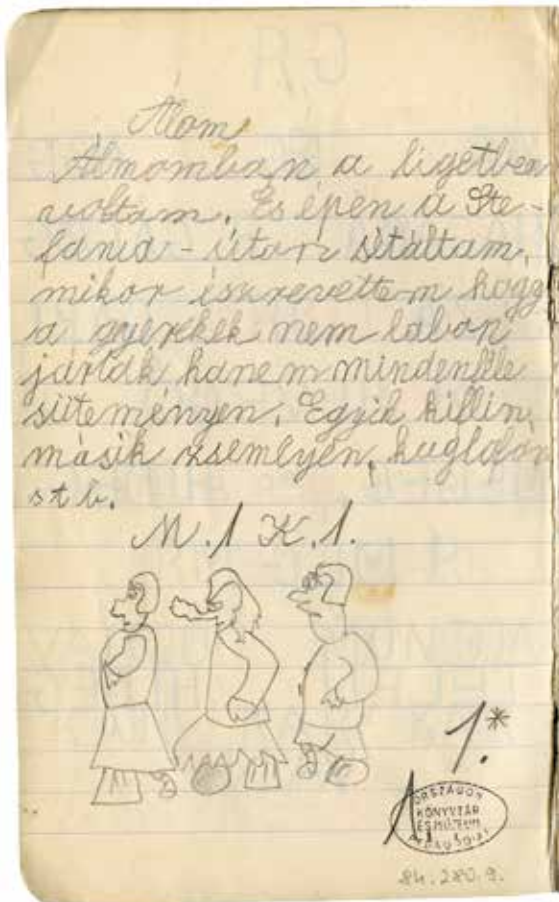 Álom
Álmomban a ligetben
voltam. És épen a Ste-
fánia-úton sétáltam,
mikor észrevettem hogy
a gyerekek nem lábon
jártak hanem mindenféle
süteményen. Egyik kiflin,
másik zsemlyén, kuglófon
stb.
M.1 K.1.
1.*
ORSZÁGOS
KÖNYVTÁR
ÉS MÚZEUM
PEDAGÓGIAI
84.280.9.